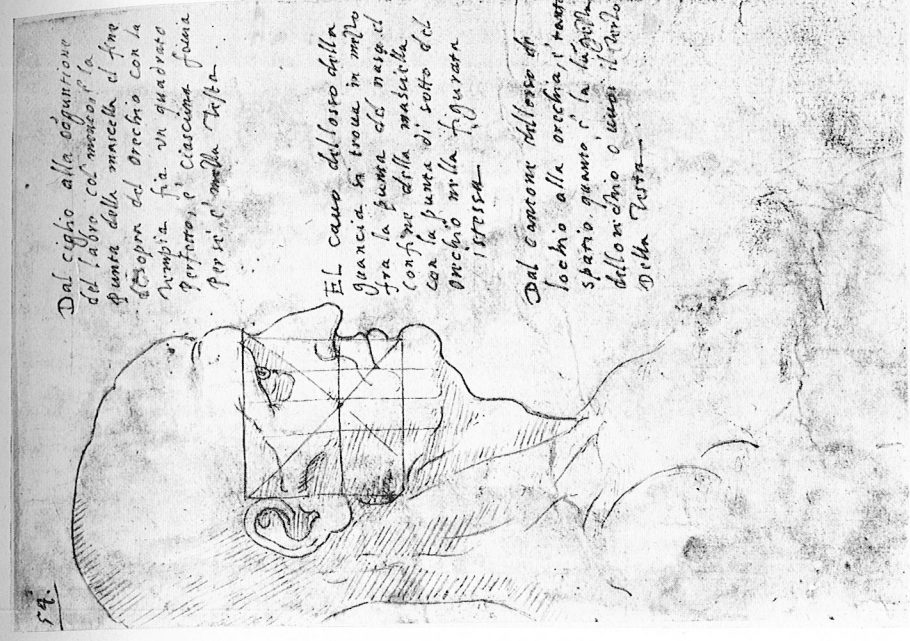 Dal ciglio alla congiuntione
del labro col mento, e la
punta della mascella el fine
di sopra del orechio con la
tempia fia un quadrato
Perfetto, e ciascuna faccia
Per sè è mezza Testa
El cavo dell osso della
guancia si trova in mezzo
fra la punta del naso, el
confine della mascella
con la punta di sotto del
orechio nella figurata
istessa
Dal cantone dell osso di
lochio alla orechia, è tanto
spatio quanto è la
dell orechio o
Della Testa
54.